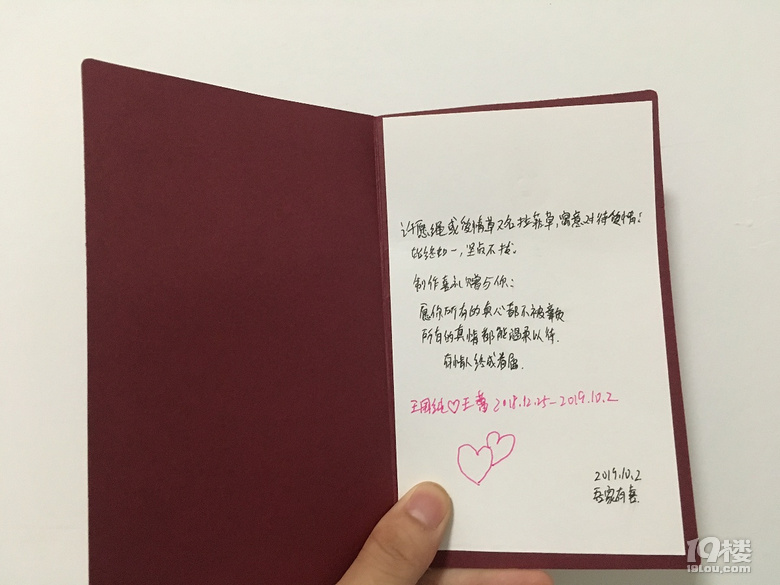 许愿绳或爱情草又名拉菲草,寓意对待爱情:
始终如一,坚贞不拔。
制作喜礼赠与你:
愿你所有的真心都不被辜负
所有的真情都能温柔以待.
有情人终成眷属.
王国纯♡王蕾 2018.12.25-2019.10.2
2019.10.2
吾家有喜
19楼
19lou.com